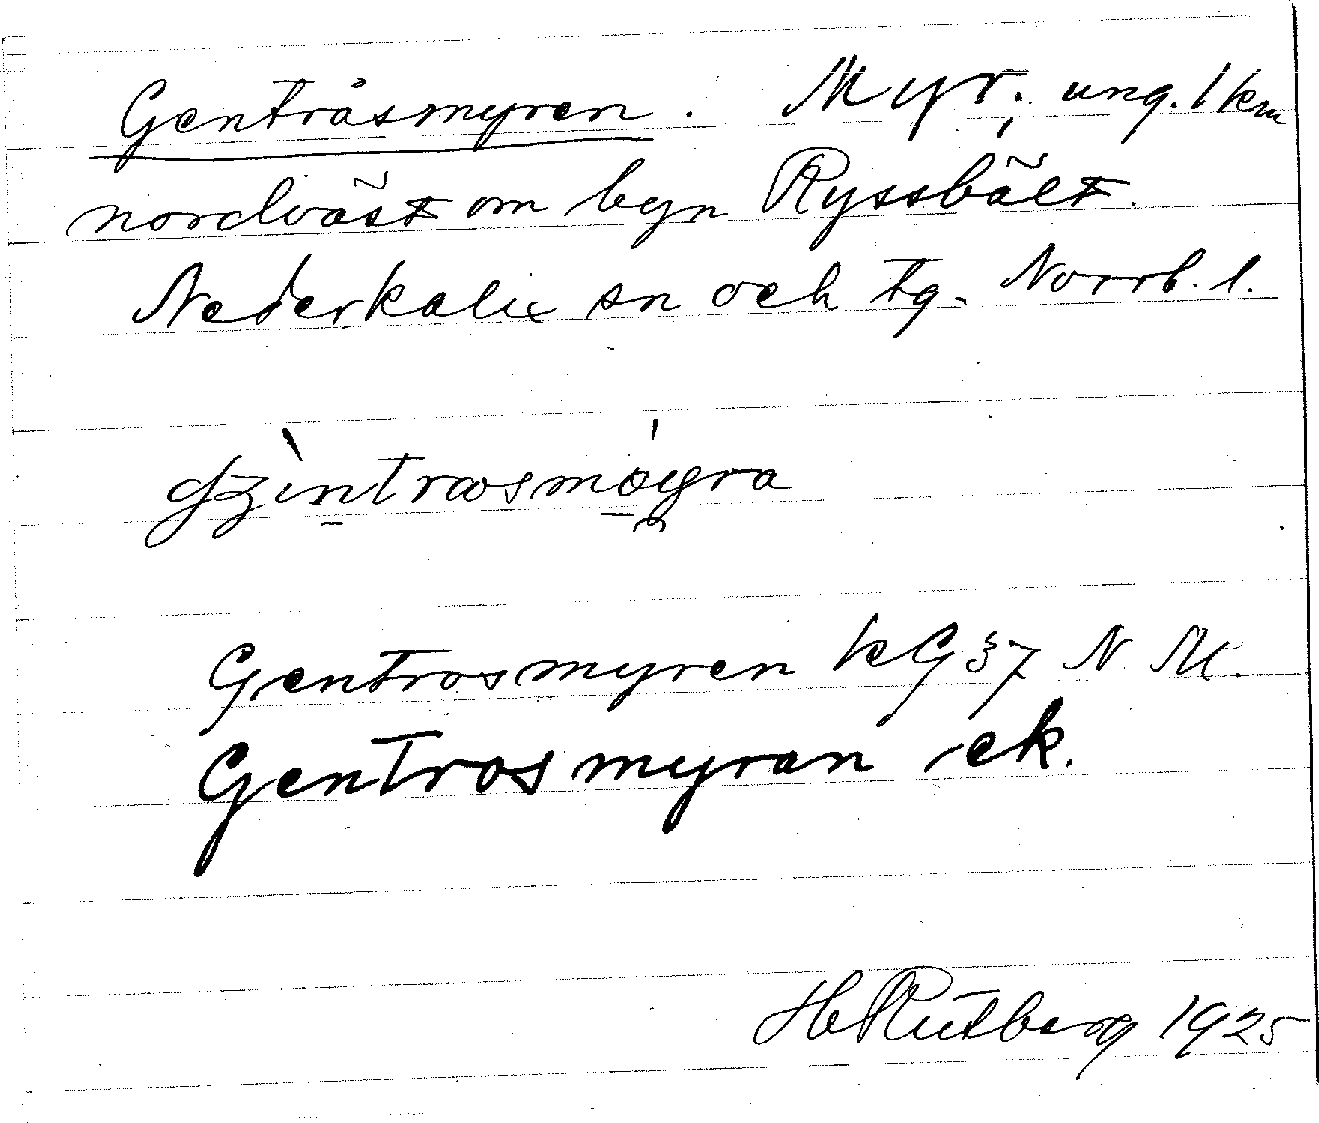 Genträsmyren. Myr, ung. 1 km
nordväst om byn Ryssbält.
Nederkalix sn och tg. Norrb. l.
Gentrosmyren kG 37 N M.
Gentrosmyran ek.
H Rutberg 1925